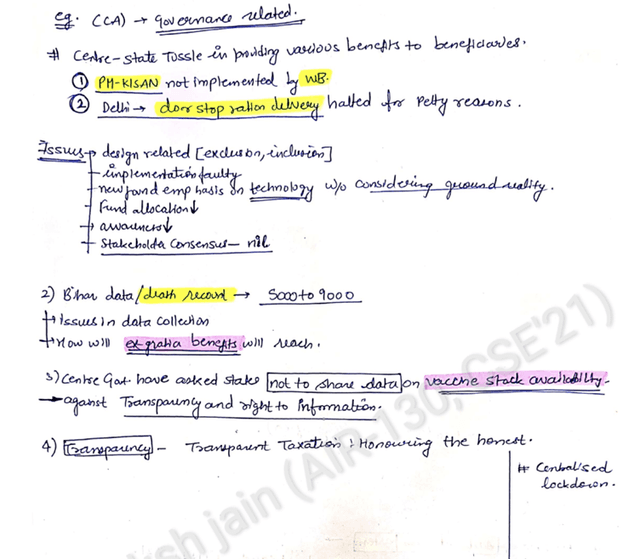 eg. (CCA) → governance related.
# Centre-state Tussle in providing various benefits to beneficiaries.
① PM-KISAN not implemented by WB.
② Delhi → door stop ration delivery halted for Petty reasons.
Issues → design related [exclusion, inclusion]
→ implementation faulty
→ newfound emphasis on technology w/o considering ground reality.
→ Fund allocation ↓
→ awareness ↓
→ Stakeholder Consensus - nil
2) Bihar data/death record → 5000 to 9000
→ Issues in data collection
→ How will ex-gratia benefits will reach.
3) Centre Govt have asked state not to share data on vaccine stock availability.
→ against Transparency and right to information.
4) Transparency - Transparent Taxation : Honouring the honest.
# Centralised
lockdown.
sh jain (AIR-130, CSE'21)